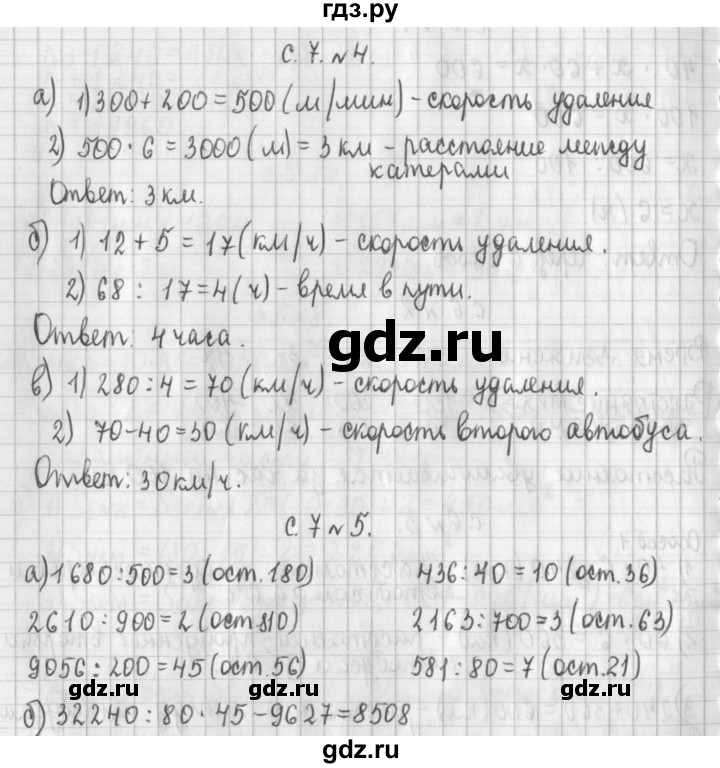 гдз.ру
с. 7. № 4.
а) 1) 300 + 200 = 500 (м/мин) - скорость удаления
2) 500 · 6 = 3000 (м) = 3 км - расстояние между
катерами
Ответ: 3 км.
б) 1) 12 + 5 = 17 (км/ч) - скорость удаления.
2) 68 : 17 = 4 (ч) - время в пути.
Ответ: 4 часа.
gdz.ru
в) 1) 280 : 4 = 70 (км/ч) - скорость удаления.
2) 70 - 40 = 30 (км/ч) - скорость второго автобуса.
Ответ: 30 км/ч.
с. 7 № 5.
а) 1680 : 500 = 3 (ост. 180) 436 : 40 = 10 (ост. 36)
2610 : 900 = 2 (ост. 810) 2163 : 700 = 3 (ост. 63)
9056 : 200 = 45 (ост. 56) 581 : 80 = 7 (ост. 21)
gdz.ru gdz.ru
б) 32240 : 80 · 45 - 9627 = 8508
gdz.ru